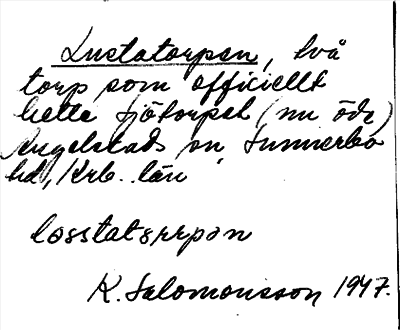 Lustatorpen, två
torp som officiellt
hette Sjötorpet (nu öde)
Angelstads sn Sunnerbo
hd, Krb. län
losstatorpon
K. Salomonsson 1947.